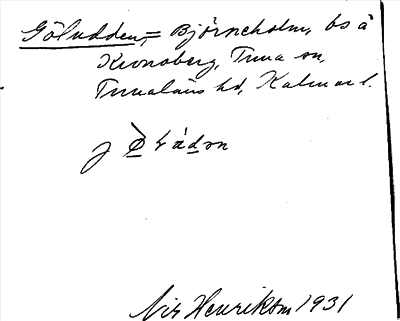 Göludden, = Björneholm, bs å
Kronoberg, Tuna sn,
Tunaläns hd, Kalmar l.
Nis Henrikson 1931